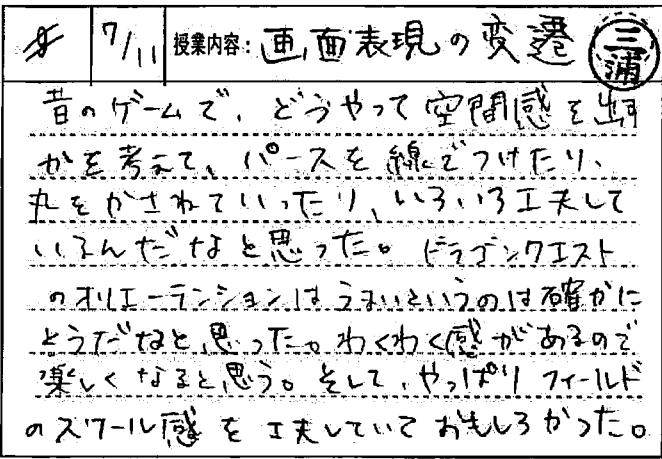 7/11 授業内容: 画面表現の変遷 三浦
昔のゲームで、どうやって空間感を出す
かを考えて、パースを線でつけたり、
丸をかさねていったり、いろいろ工夫して
いるんだなと思った。ドラゴンクエスト
のオリエーランションはうまいというのは確かに
とうだなと思った。わくわく感があるので
楽しくなると思う。そして、やっぱりフィールド
のスケール感を工夫していておもしろかった。